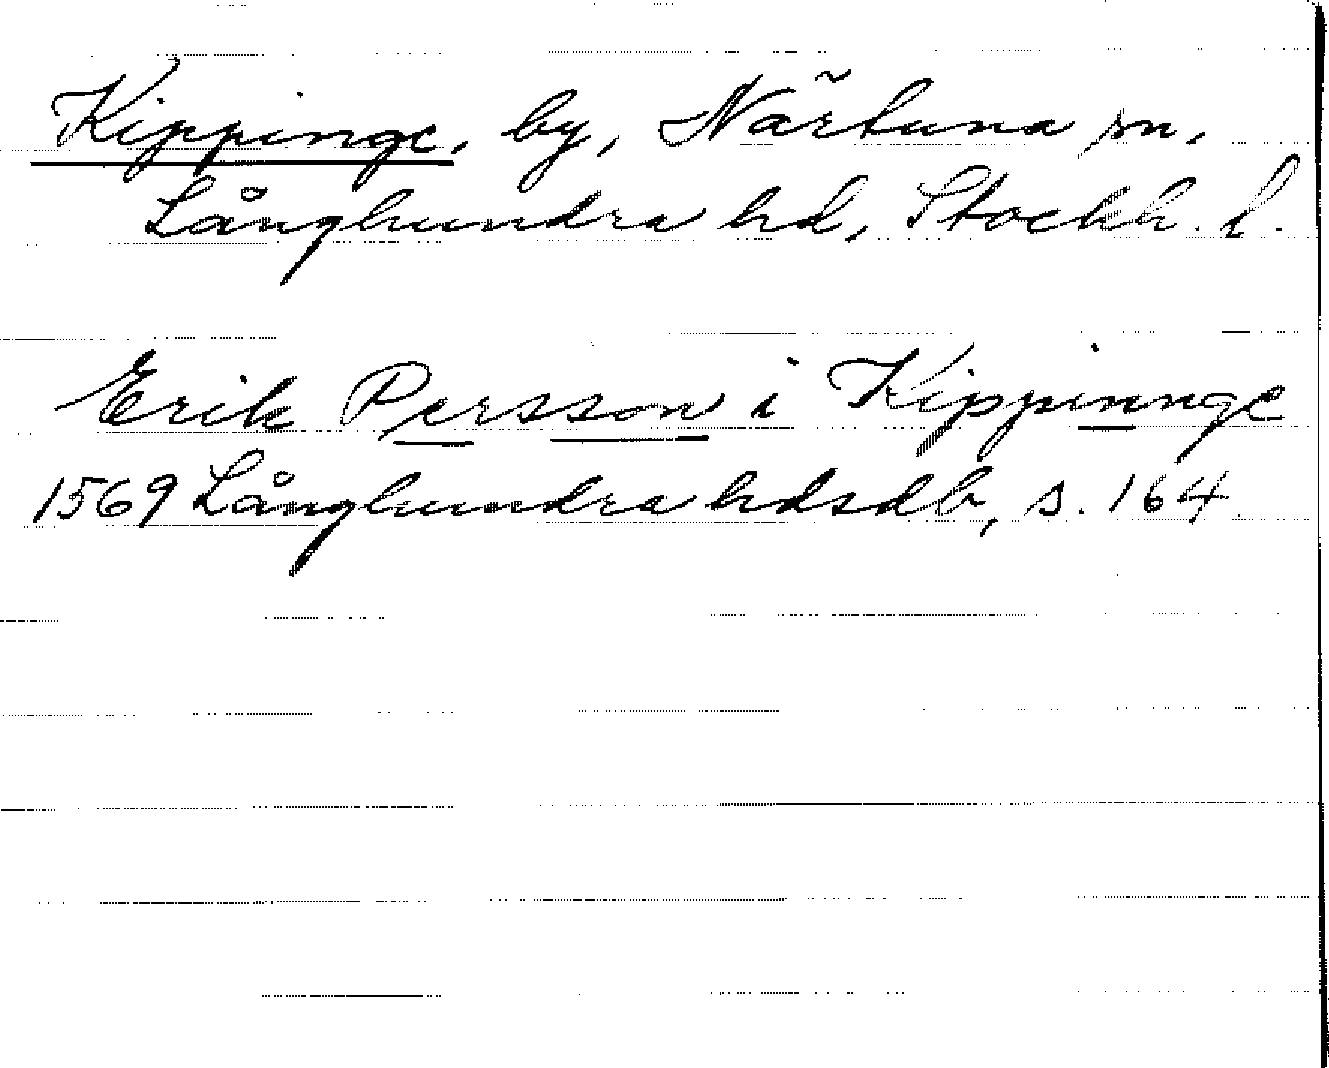 Kippinge, by, Närtuna sn,
Långhundra hd, Stockh. l.
Erik Persson i Kippinnge
1569 Långhundra hdsdb, s. 164.